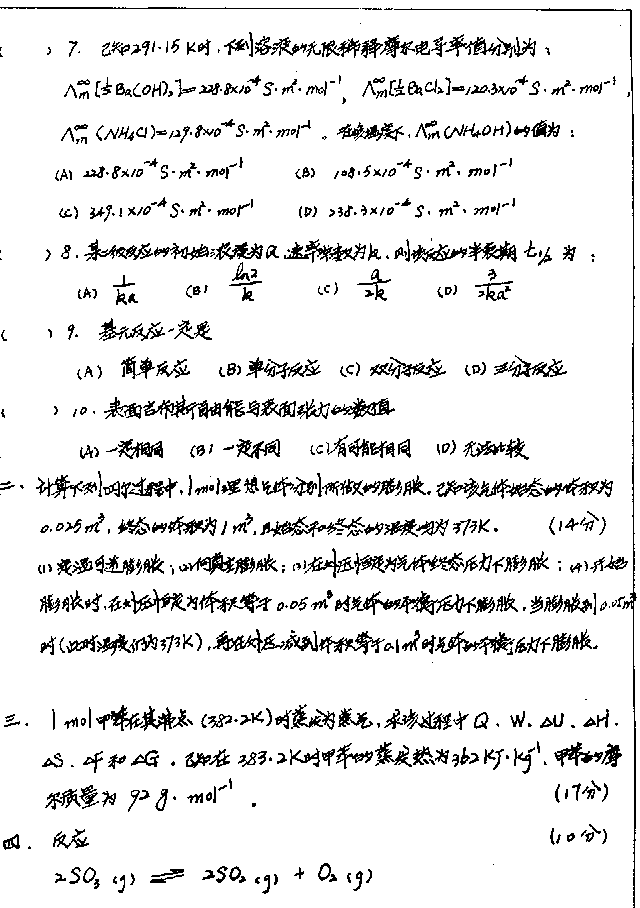 ( ) 7. 已知291.15K时,下列溶液的无限稀释摩尔电导率值分别为:
Λm∞[½Ba(OH)₂]=228.8×10⁻⁴S·m²·mol⁻¹, Λm∞[½BaCl₂]=120.3×10⁻⁴S·m²·mol⁻¹,
Λm∞(NH₄Cl)=129.8×10⁻⁴S·m²·mol⁻¹。在该温度下,Λm∞(NH₄OH)的值为:
(A) 228.8×10⁻⁴S·m²·mol⁻¹ (B) 108.5×10⁻⁴S·m²·mol⁻¹
(C) 349.1×10⁻⁴S·m²·mol⁻¹ (D) 238.3×10⁻⁴S·m²·mol⁻¹
( ) 8. 某 级反应的初始浓度为a,速率常数为k,则该反应的半衰期t½为:
(A) 1/ka (B) ln2/k (C) a/2k (D) 3/2ka²
( ) 9. 基元反应一定是
(A) 简单反应 (B) 单分子反应 (C) 双分子反应 (D) 三分子反应
( ) 10. 表面吉布斯自由能与表面张力的数值
(A) 一定相同 (B) 一定不同 (C) 有可能相同 (D) 无法比较
二、计算下列四个过程中,1mol理想气体分别所做的膨胀。已知该气体始态的体积为
0.025m³,终态的体积为1m³,且始态和终态的温度均为373K。 (14分)
(1)定温可逆膨胀;(2)向真空膨胀;(3)在外压恒定为气体终态压力下膨胀;(4)开始
膨胀时,在外压恒定为体积等于0.05m³时气体的平衡压力下膨胀,当膨胀到0.05m³
时(此时温度仍为373K),再在外压减到体积等于0.1m³时气体的平衡压力下膨胀。
三. 1mol甲苯在其沸点(382.2K)时蒸发为蒸气,求该过程中Q、W、ΔU、ΔH、
ΔS、ΔF和ΔG。已知在383.2K时甲苯的蒸发热为362KJ·Kg⁻¹,甲苯的摩
尔质量为92g·mol⁻¹。 (17分)
四. 反应 (10分)
2SO₃(g) ⇌ 2SO₂(g) + O₂(g)